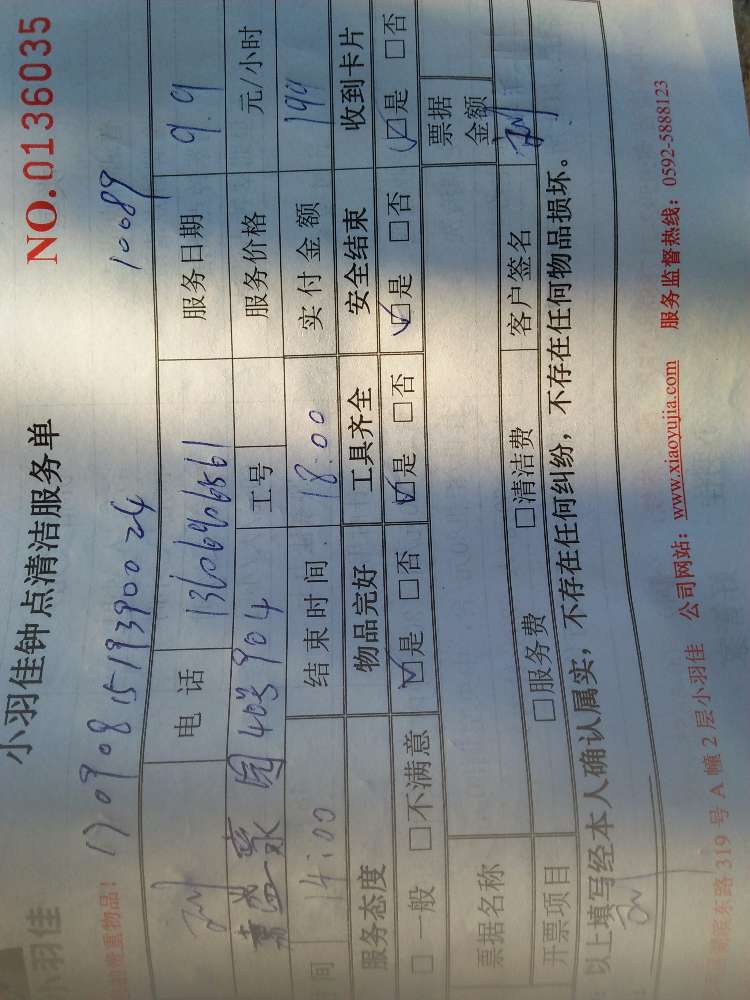 小羽佳
小羽佳钟点清洁服务单
NO.0136035
的贵重物品！
170908151939 00 24
10089
电 话 13606906561 服务日期 9.9
园 403 904 工号 服务价格 元/小时
间 14:00 结束时间 18:00 实付金额 199
服务态度 物品完好 工具齐全 安全结束 收到卡片
□一般 □不满意 ☑是 □否 ☑是 □否 ☑是 □否 ☑是 □否
票据名称 票据金额
开票项目 □服务费 □清洁费 客户签名
以上填写经本人确认属实，不存在任何纠纷，不存在任何物品损坏。
湖滨东路 319 号 A 幢 2 层小羽佳 公司网站：www.xiaoyujia.com 服务监督热线：0592-5888123